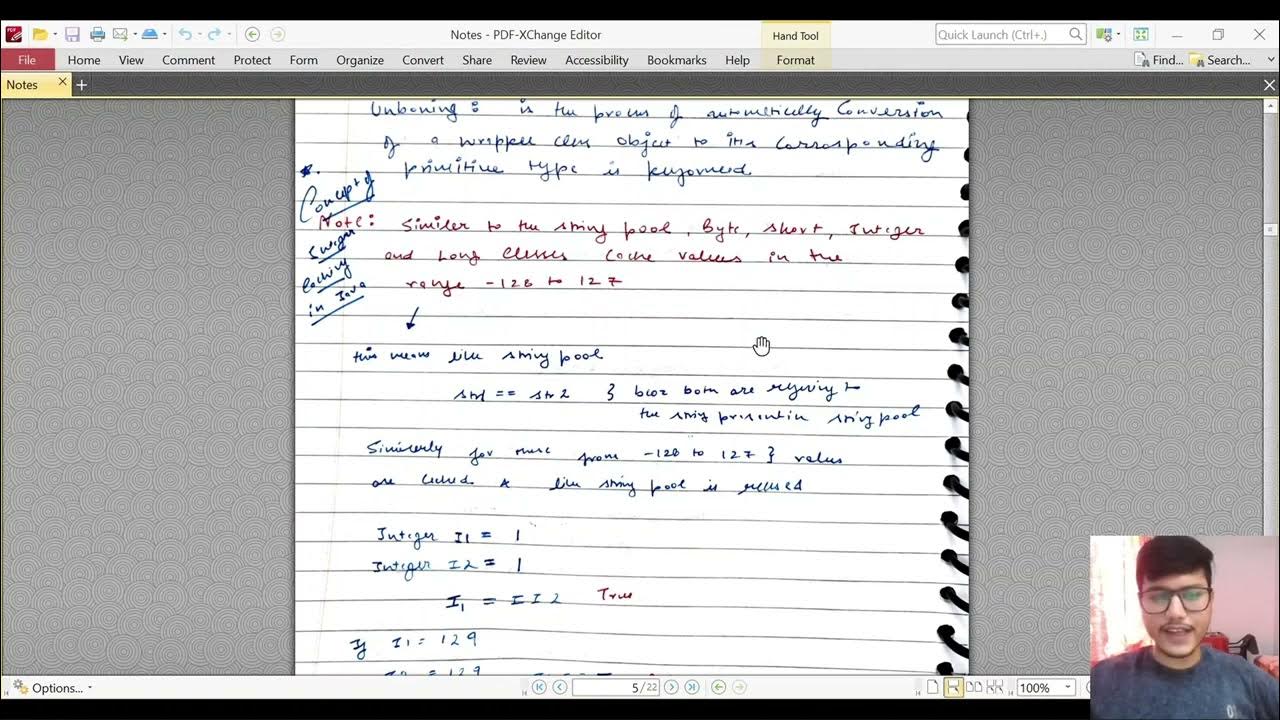 Notes - PDF-XChange Editor
Hand Tool
Quick Launch (Ctrl+.)
File Home View Comment Protect Form Organize Convert Share Review Accessibility Bookmarks Help Format
Find... Search...
Notes
Unboxing: is the process of automatically Conversion
of a wrapper class object to its corrosponding
primitive type is performed.
Concept of
Integer
caching
in Java
Note: Similer to the string pool, Byte, short, Integer
and Long classes Cache values in the
range -128 to 127
this means like string pool
str1 == str2 } bcoz both are refering to
the string present in string pool
Similerly for these from -128 to 127 } values
are cached & like string pool is reused
Integer I1 = 1
Integer I2 = 1
I1 == I2 True
If I1 = 129
I2 = 129
Options...
5/22
100%